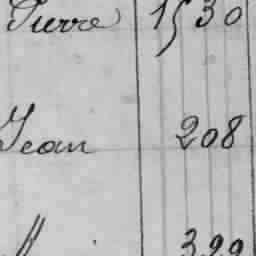 Pierre 1530
Jean 208
399